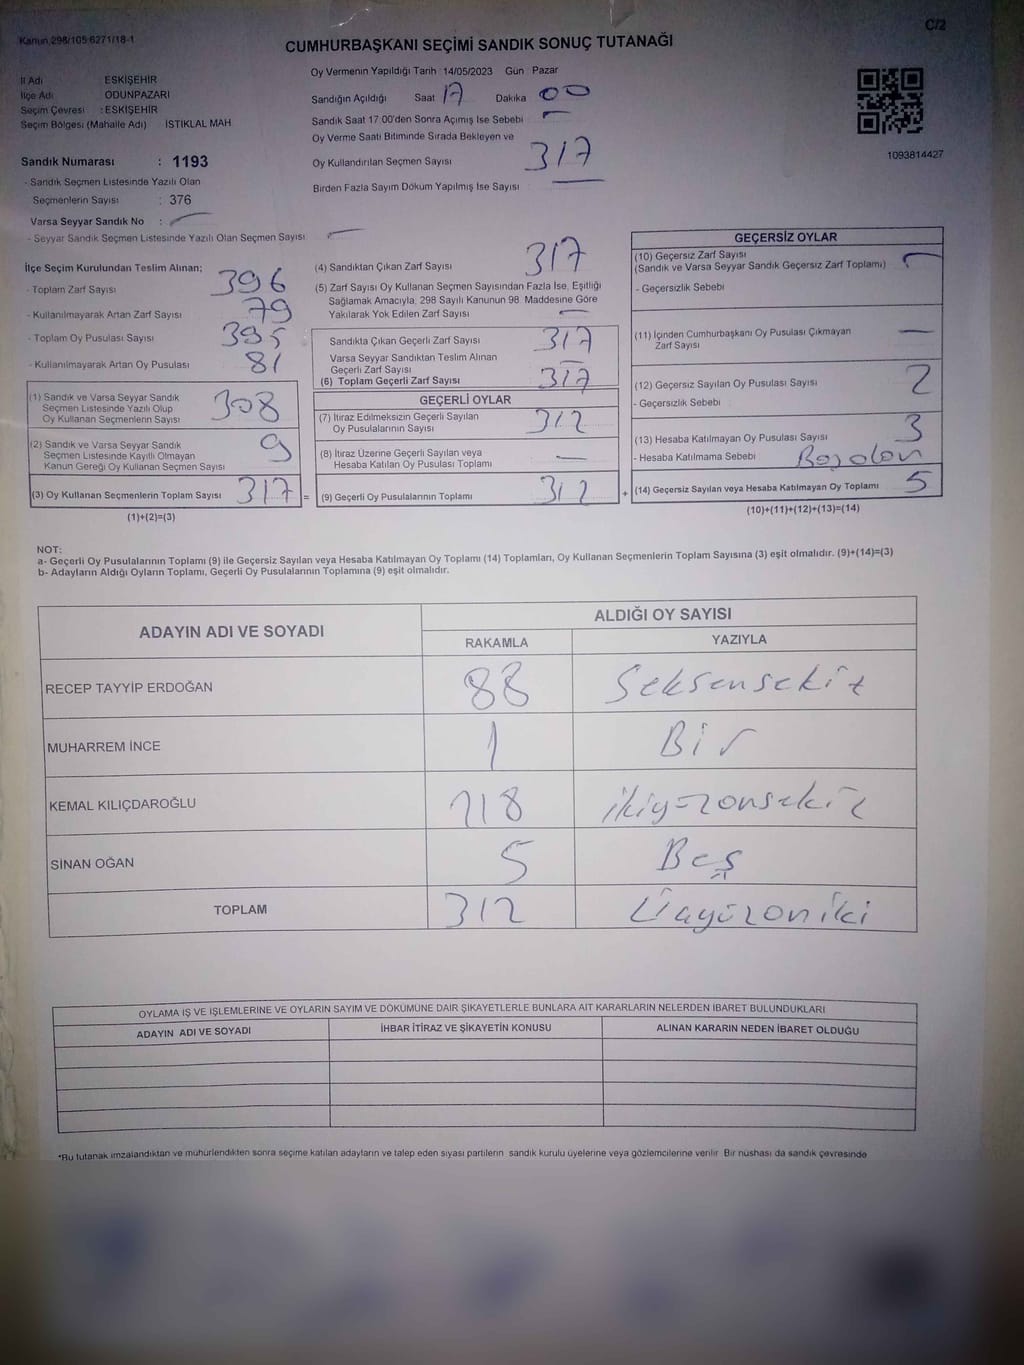 C/2
Kanun 298/105 6271/18-1
CUMHURBAŞKANI SEÇİMİ SANDIK SONUÇ TUTANAĞI
İl Adı : ESKİŞEHİR
İlçe Adı : ODUNPAZARI
Seçim Çevresi : ESKİŞEHİR
Seçim Bölgesi (Mahalle Adı) : İSTİKLAL MAH
Sandık Numarası : 1193
- Sandık Seçmen Listesinde Yazılı Olan
Seçmenlerin Sayısı : 376
Varsa Seyyar Sandık No : -
- Seyyar Sandık Seçmen Listesinde Yazılı Olan Seçmen Sayısı -
Oy Vermenin Yapıldığı Tarih : 14/05/2023 Gün : Pazar
Sandığın Açıldığı Saat 17 Dakika 00
Sandık Saat 17.00'den Sonra Açımış İse Sebebi -
Oy Verme Saati Bitiminde Sırada Bekleyen ve
Oy Kullandırılan Seçmen Sayısı 317
Birden Fazla Sayım Döküm Yapılmış İse Sayısı -
1093814427
İlçe Seçim Kurulundan Teslim Alınan;
- Toplam Zarf Sayısı 396
- Kullanılmayarak Artan Zarf Sayısı 79
- Toplam Oy Pusulası Sayısı 395
- Kullanılmayarak Artan Oy Pusulası 81
(1) Sandık ve Varsa Seyyar Sandık
Seçmen Listesinde Yazılı Olup
Oy Kullanan Seçmenlerin Sayısı 308
(2) Sandık ve Varsa Seyyar Sandık
Seçmen Listesinde Kayıtlı Olmayan
Kanun Gereği Oy Kullanan Seçmen Sayısı 9
(3) Oy Kullanan Seçmenlerin Toplam Sayısı 317 =
(1)+(2)=(3)
(4) Sandıktan Çıkan Zarf Sayısı 317
(5) Zarf Sayısı Oy Kullanan Seçmen Sayısından Fazla İse, Eşitliği
Sağlamak Amacıyla, 298 Sayılı Kanunun 98. Maddesine Göre
Yakılarak Yok Edilen Zarf Sayısı -
Sandıkta Çıkan Geçerli Zarf Sayısı 317
Varsa Seyyar Sandıktan Teslim Alınan
Geçerli Zarf Sayısı -
(6) Toplam Geçerli Zarf Sayısı 317
GEÇERLİ OYLAR
(7) İtiraz Edilmeksizin Geçerli Sayılan
Oy Pusulalarının Sayısı 312
(8) İtiraz Üzerine Geçerli Sayılan veya
Hesaba Katılan Oy Pusulası Toplamı -
(9) Geçerli Oy Pusulalarının Toplamı 312 +
GEÇERSİZ OYLAR
(10) Geçersiz Zarf Sayısı
(Sandık ve Varsa Seyyar Sandık Geçersiz Zarf Toplamı) -
- Geçersizlik Sebebi
(11) İçinden Cumhurbaşkanı Oy Pusulası Çıkmayan
Zarf Sayısı -
(12) Geçersiz Sayılan Oy Pusulası Sayısı 2
- Geçersizlik Sebebi
(13) Hesaba Katılmayan Oy Pusulası Sayısı 3
- Hesaba Katılmama Sebebi
(14) Geçersiz Sayılan veya Hesaba Katılmayan Oy Toplamı 5
(10)+(11)+(12)+(13)=(14)
NOT:
a- Geçerli Oy Pusulalarının Toplamı (9) ile Geçersiz Sayılan veya Hesaba Katılmayan Oy Toplamı (14) Toplamları, Oy Kullanan Seçmenlerin Toplam Sayısına (3) eşit olmalıdır. (9)+(14)=(3)
b- Adayların Aldığı Oyların Toplamı, Geçerli Oy Pusulalarının Toplamına (9) eşit olmalıdır.
ADAYIN ADI VE SOYADI ALDIĞI OY SAYISI
RAKAMLA YAZIYLA
RECEP TAYYİP ERDOĞAN 88 Seksensekiz
MUHARREM İNCE 1 Bir
KEMAL KILIÇDAROĞLU 218 ikiyüzonsekiz
SİNAN OĞAN 5 Beş
TOPLAM 312 Üçyüzoniki
OYLAMA İŞ VE İŞLEMLERİNE VE OYLARIN SAYIM VE DÖKÜMÜNE DAİR ŞİKAYETLERLE BUNLARA AİT KARARLARIN NELERDEN İBARET BULUNDUKLARI
ADAYIN ADI VE SOYADI İHBAR İTİRAZ VE ŞİKAYETİN KONUSU ALINAN KARARIN NEDEN İBARET OLDUĞU
*Bu tutanak imzalandıktan ve mühürlendikten sonra seçime katılan adayların ve talep eden siyasi partilerin sandık kurulu üyelerine veya gözlemcilerine verilir. Bir nüshası da sandık çevresinde